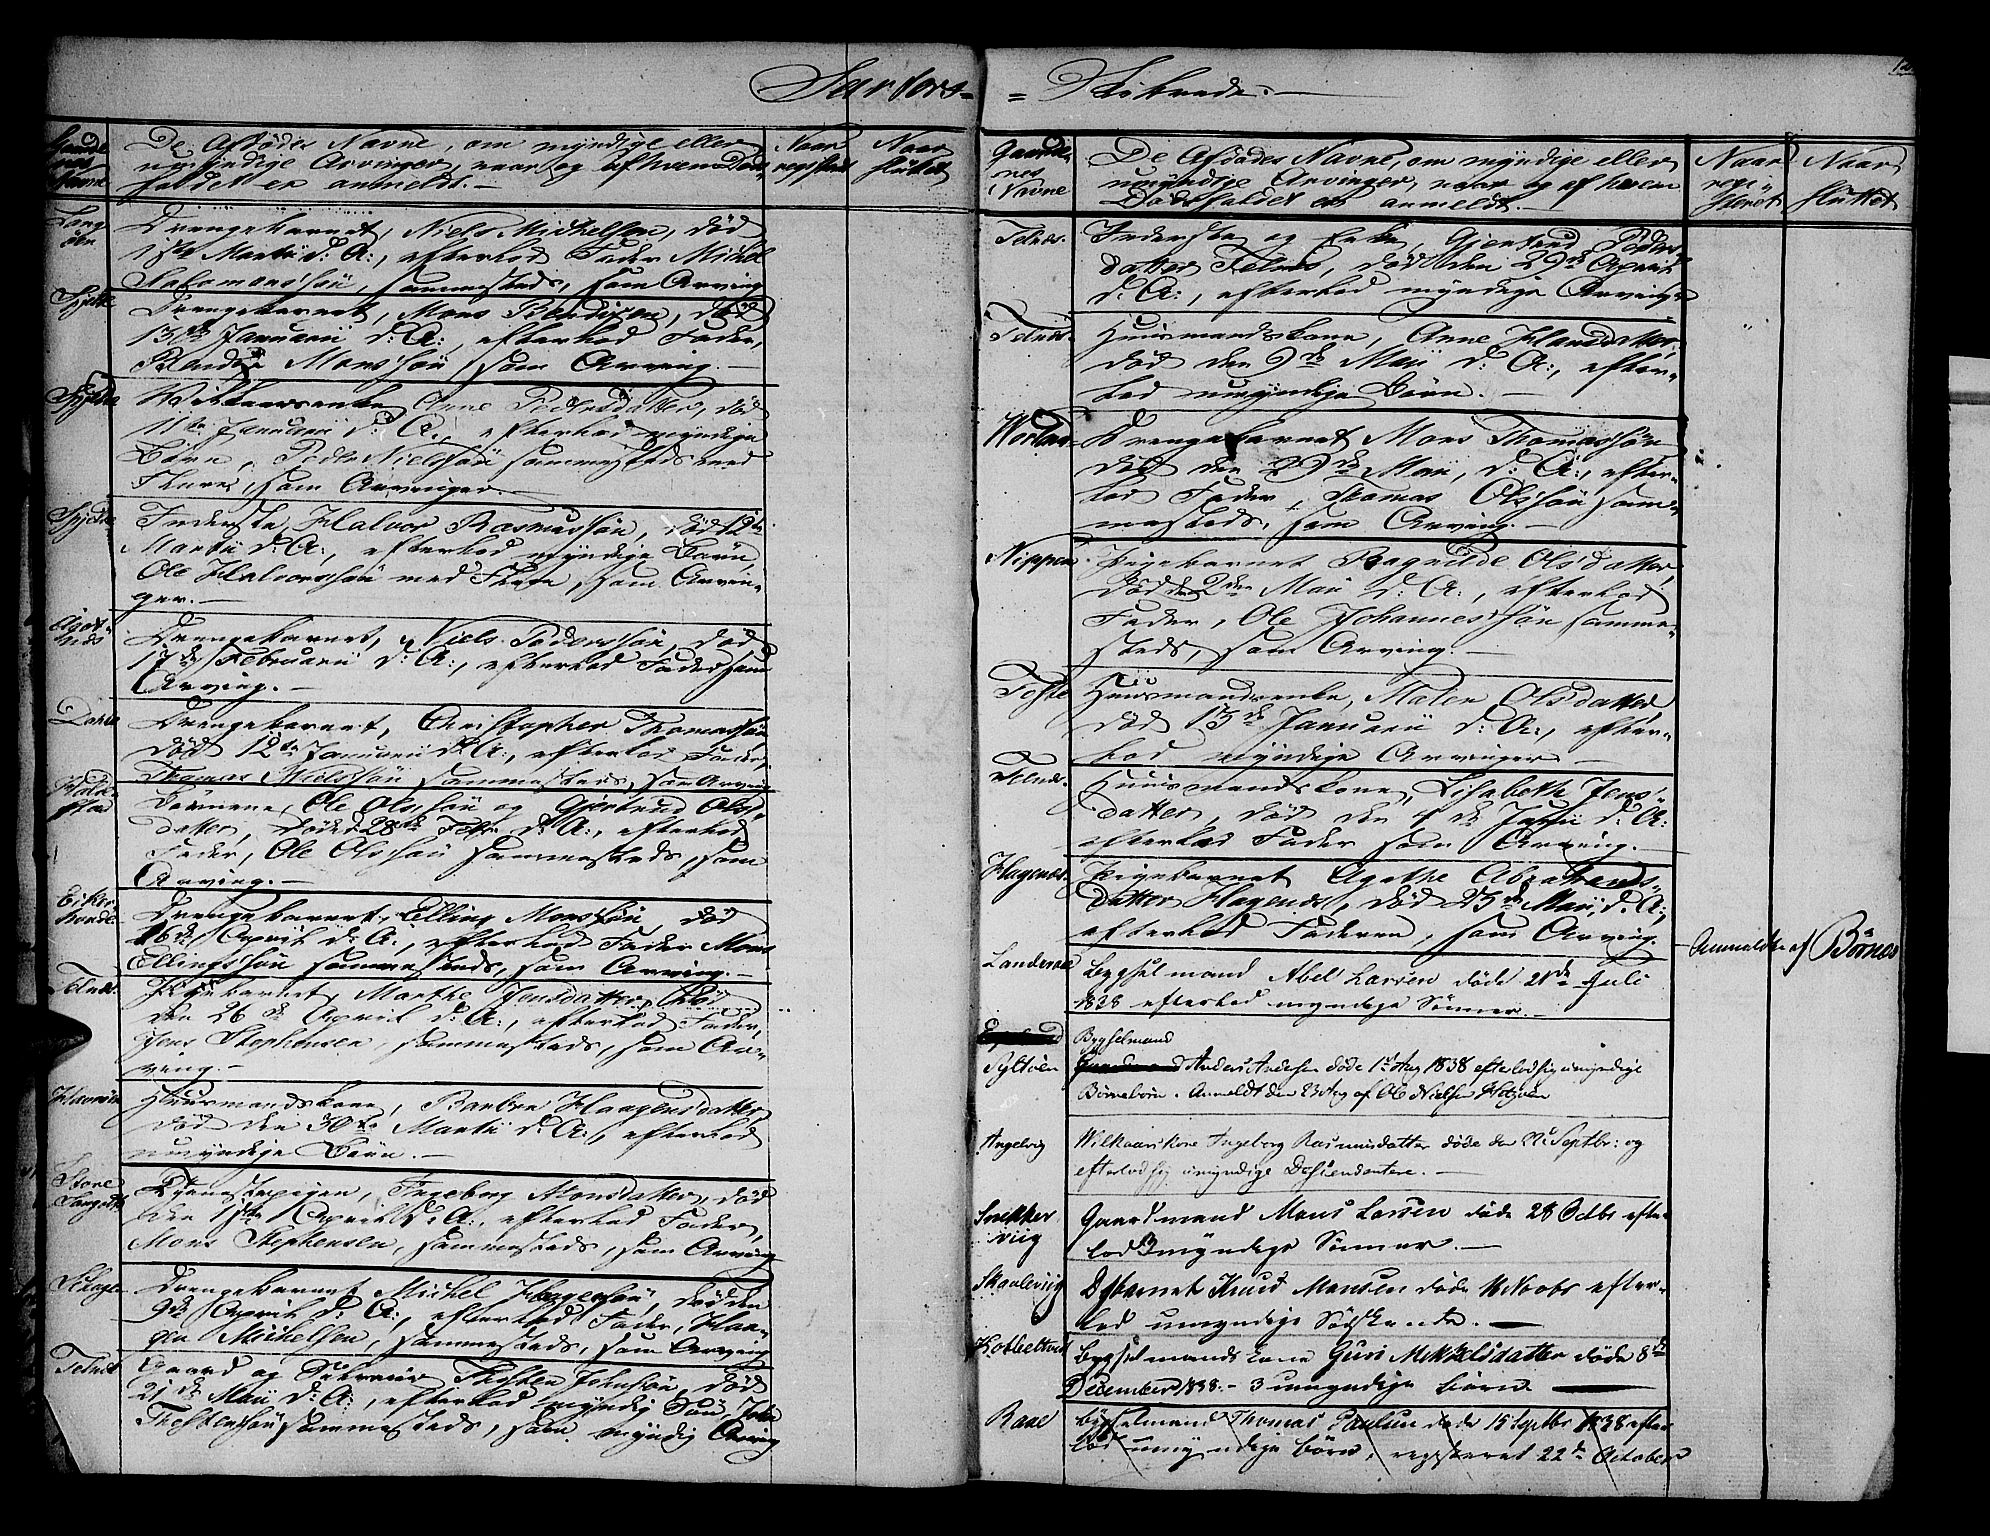 Sartors= = Skibrede.
De Afdødes Navne, om myndige eller
umyndige Arvinger, naar og af hvem Døds-
faldet er anmeldt.
Naar registeret
Naar sluttet
Drengebarnet, Niels Michelsen, død
1ste Martii d: A:, efterlod Fader Michel
Salamonssøn, sammesteds, som Arving
Drengebarnet, Mons Bendixen, død
Januarii d: A:, efterlod Fader,
Monssøn, som Arving.
Anne Pedersdatter, død
11te Januarii d: A:, efterlod myndige
Børn, Peder Nielssøn sammesteds med
Flere, som Arvinger.
Inderste, Halvor Rasmussøn, død 12te
Martii d: A:, efterlod myndige Børn,
Ole Halvorssøn med Flere, som Arvin-
ger.
Drengebarnet, Niels Pederssøn, død
17de Februarii d: A:, efterlod Fader som
Arving.
Dahle
Drengebarnet, Christopher Thomassøn,
død 12te Januarii d: A:, efterlod Fader,
Thomas Nielssøn sammesteds, som Arving
Børnene, Ole Olssøn og Gjertrud Ols-
datter, døde 28de Febr. d: A:, efterlod
Fader, Ole Olssøn sammesteds, som
Arving.
Drengebarnet, Elling Monssøn, død
16de April d: A:, efterlod Fader Mons
Ellingssøn sammesteds, som Arving.
Telnes
Pigebarnet, Marthe Jensdatter, død
den 26de April d: A:, efterlod Fader,
Jens Stephensen, sammesteds, som Ar-
ving.
Huusmandskone, Haagensdatter,
død den 30te Martii d: A:, efterlod
umyndige Børn.
Store
Tjenestepigen, Ingeborg Monsdatter, død
den April d: A:, efterlod Fader,
Mons Stephensen, sammesteds, som Arving
Drengebarnet Michel Haagenssøn, død den
9de April d: A:, efterlod Fader, Haa-
gen Michelsen, sammesteds, som Arving
Telnes
Gaard og Thosten Johnsøn, død
21de Maii d: A:, efterlod myndig Søn, John
Thostenssøn sammesteds, som myndig Arving
Gaarde-
nes
Navne
De Afdødes Navne, om myndige eller
umyndige Arvinger, naar og af hvem
Dødsfaldet er anmeldt.
Naar
regi-
steret
Naar
sluttet
Telnes.
Inderste og Enke, Gjertrud Peders-
datter Telnes, død den 29de April
d: A:, efterlod myndige Arvinger
Telnes.
Huusmandskone, Anne Hansdatter,
død den 9de Maii d: A:, efter-
lod umyndige Børn.
Drengebarnet Mons Thomassøn
død den 29de Maii, d: A:, efter-
lod Fader, Thomas Olssøn sam-
mesteds, som Arving.
Nippen
Pigebarnet Ragnilde Olsdatter,
død den 2den Maii d: A:, efterlod
Fader, Ole Johannessøn samme-
steds, som Arving.
Tofte
Huusmandsenke, Malen Olsdatter,
død 15de Januarii d: A:, efter-
lod myndige Arvinger
Telnes.
Huusmandskone, Lisabeth Jens-
datter, død den 4de Junii d: A:
efterlod Fader som Arving.
Hagenæs.
Pigebarnet Agathe Abrahams-
datter Hagenes, død 25de Maii, d: A:,
efterlod Faderen, som Arving.
Landeroe
Bygselmand Abel Larsen døde 21de Juli
1838 efterlod myndige Sønner.
Anmeldte af Børnes
Syltøen
Bygselmand
Anders Andersen døde 1st Aug 1838 efterlod sig umyndige
Børnebørn. Anmeldt den 23 Aug af Ole Nielsen
Angelvig
Wilkaarskone Ingeborg Rasmusdatter døde den Septbr: og
efterlod sig umyndige Descendentere.
Snekker
viig
Gaardmand Mons Larsen døde 28 Octbr efter-
lod 3 myndige Sønner.
Skaaleviig
Dbarnet Knud Monsen døde Novbr efter-
lod umyndige Sødskende.
Bygselmands Kone Guri Mikkelsdatter døde 8de
December 1838. - 3 umyndige børn
Bygselmand Thomas Paulsen døde 15 Septbr 1838 efter
lod umyndige børn, registeret 22de October